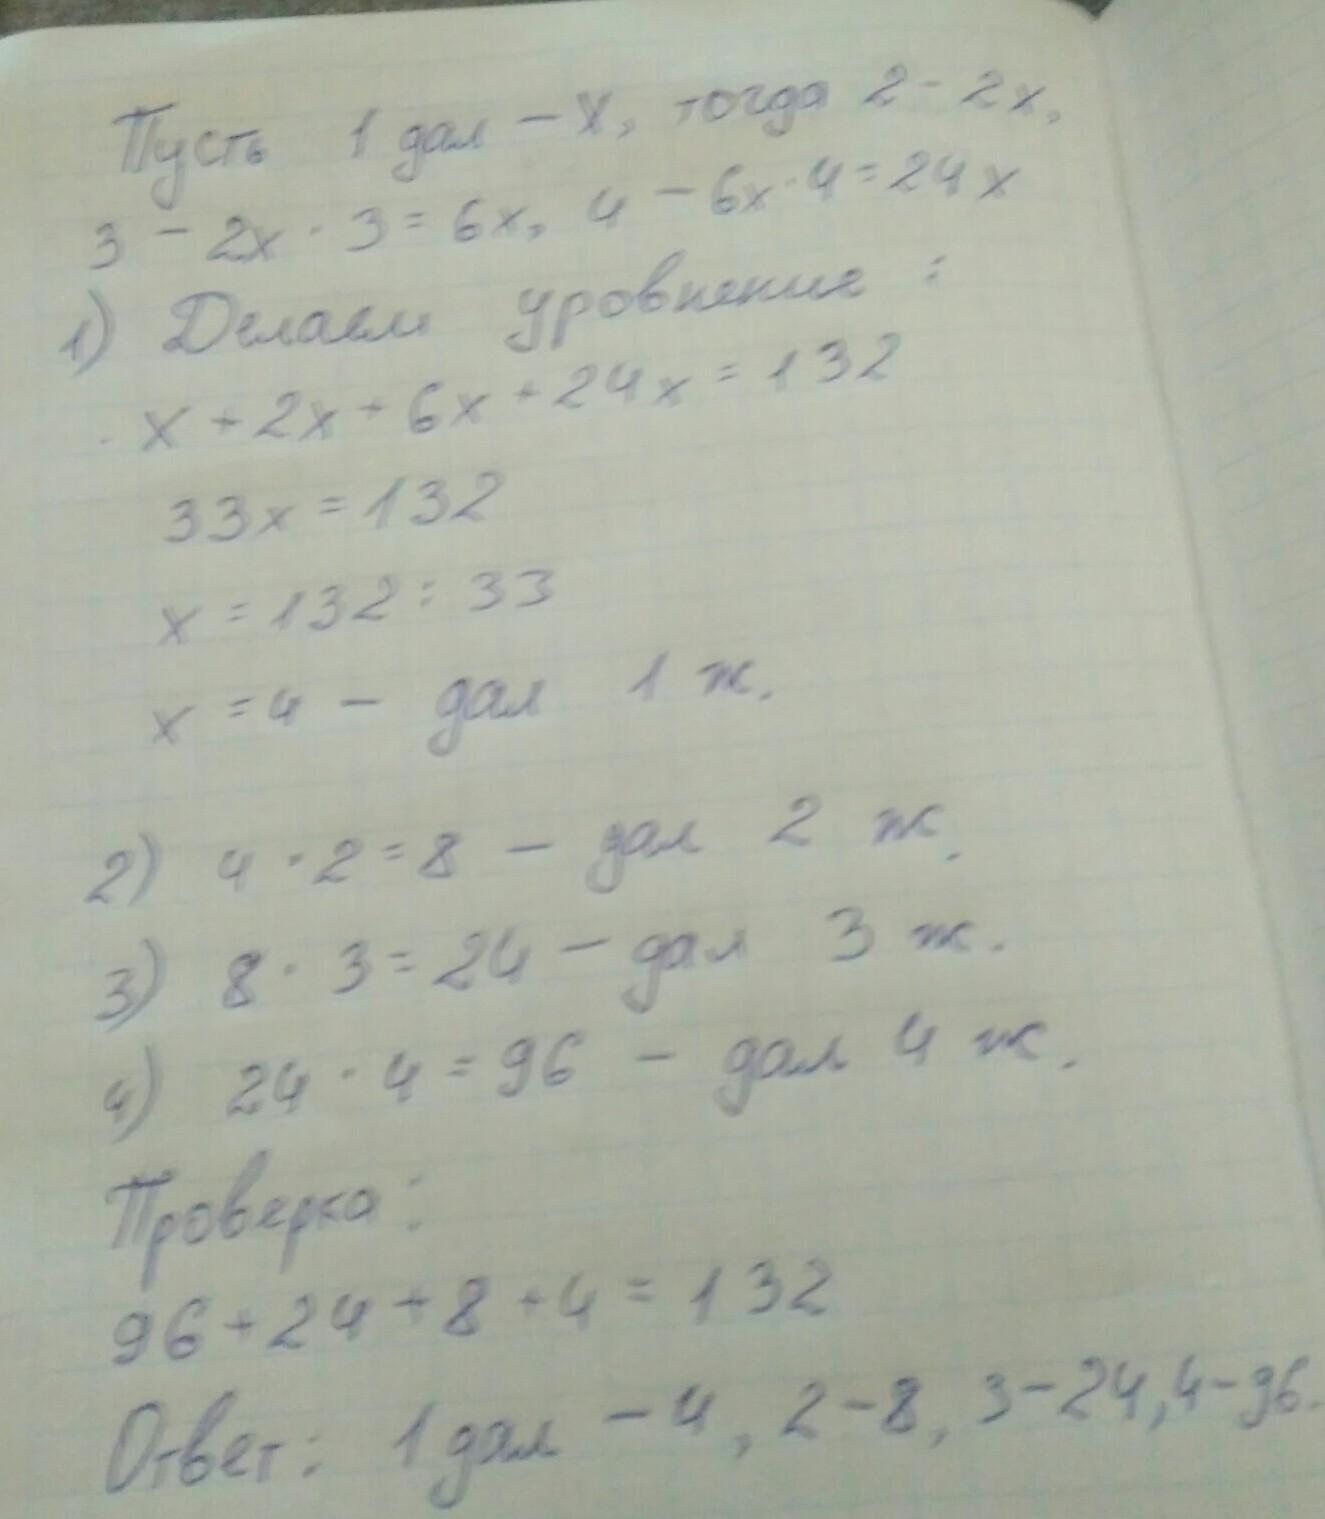 Пусть 1 дал - X, тогда 2 - 2x,
3 - 2x · 3 = 6x, 4 - 6x · 4 = 24x
1) Делаем уровнение :
x + 2x + 6x + 24x = 132
33x = 132
x = 132 : 33
x = 4 - дал 1 ж.
2) 4 · 2 = 8 - дал 2 ж.
3) 8 · 3 = 24 - дал 3 ж.
4) 24 · 4 = 96 - дал 4 ж.
Проверка:
96 + 24 + 8 + 4 = 132
Ответ: 1 дал - 4, 2 - 8, 3 - 24, 4 - 96.